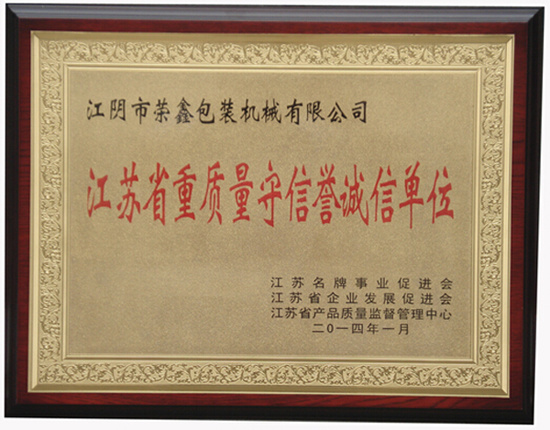 江阴市荣鑫包装机械有限公司
江苏省重质量守信誉诚信单位
江苏名牌事业促进会
江苏省企业发展促进会
江苏省产品质量监督管理中心
二0一四年一月